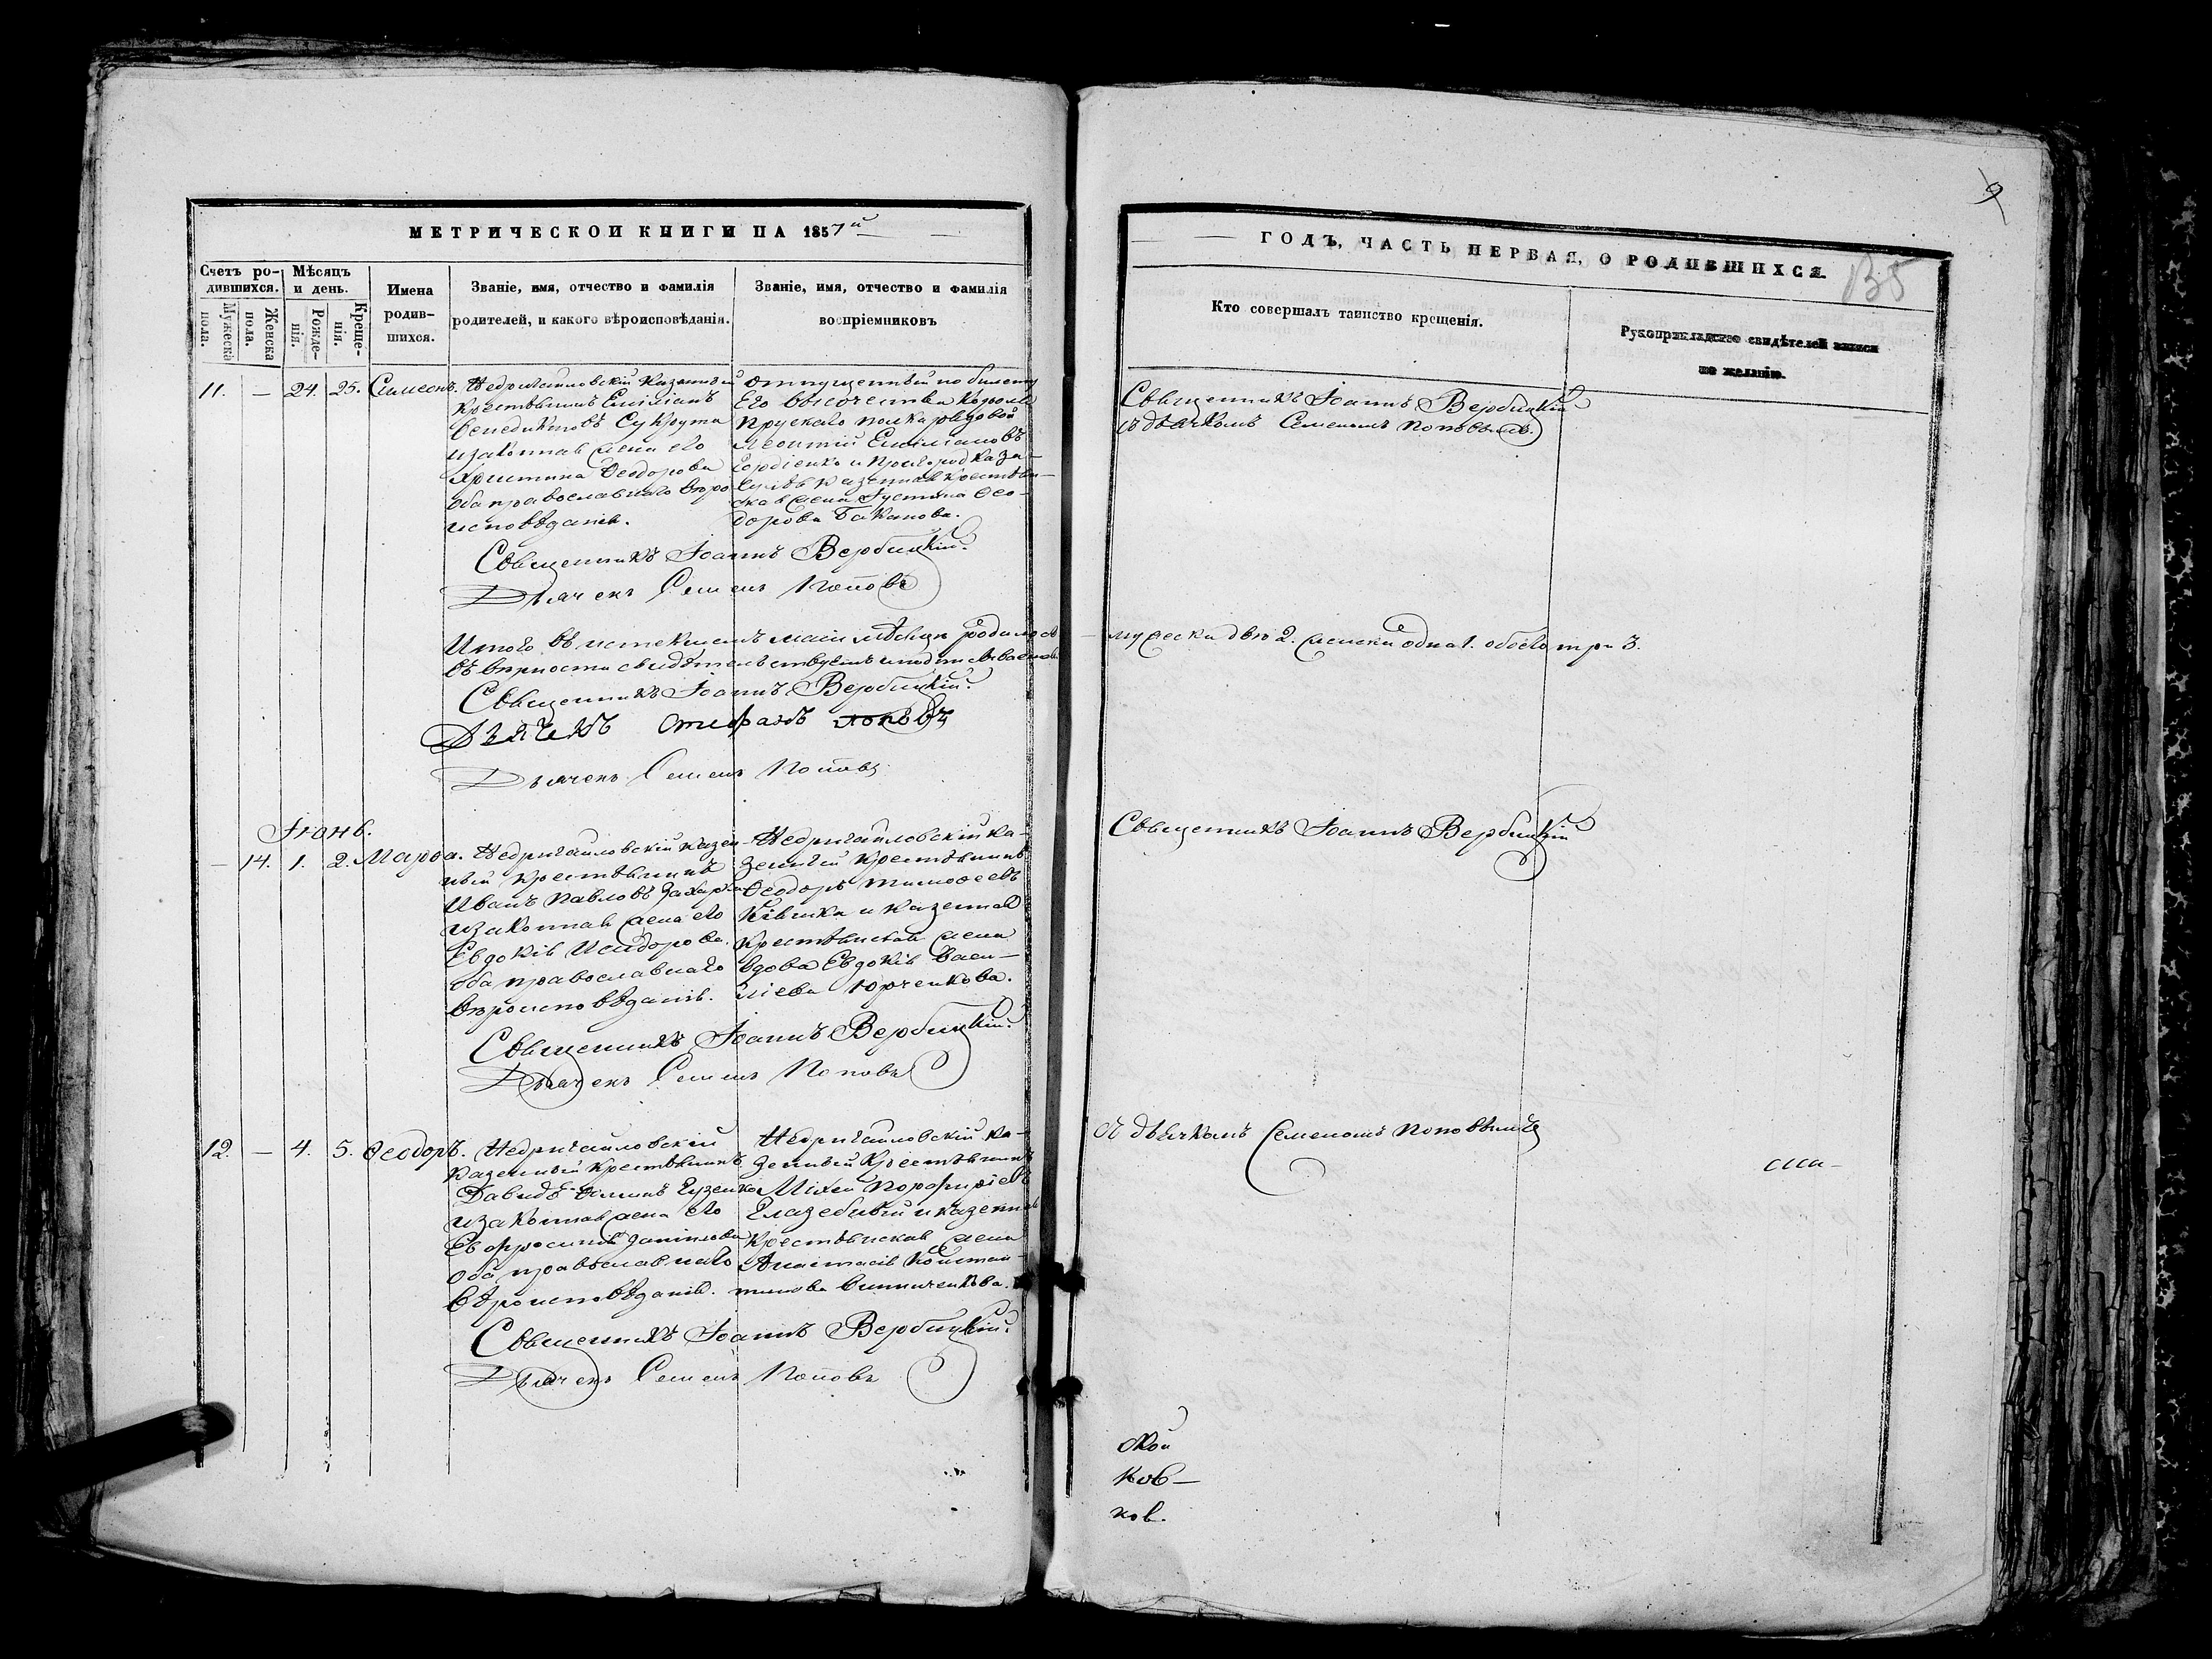 МЕТРИЧЕСКОЙ КНИГИ НА 1857й
Счетъ ро-
дившихся.
Мѣсяцъ
и день.
Мужеска
пола.
Женска
пола.
Рожде-
нія.
Креще-
нія.
Имена
родив-
шихся.
Званіе, имя, отчество и фамилія
родителей, и какого вѣроисповѣданія.
Званіе, имя, отчество и фамилія
воспріемниковъ
11. — 24. 25. Симеонъ.
Недригайловскій казенный
крестьянинъ Емиліанъ
Венедиктовъ Сукрута
и законная жена его
Христина Ѳеодорова
оба православнаго вѣро
исповѣданія.
отпущенный по билету
Его высочества Короля
Прускаго полка рядовой
Леонтій Емиліановъ
Гордіенко и
казенная крестьян-
ская жена Іустина Ѳео-
дорова Баканова.
Священникъ Іоаннъ Вербицкій.
Дьячекъ Семенъ Поповъ
Итого въ истекшемъ маіи мѣсяцѣ родилось
въ вѣрности свидѣтельствуемъ и подписываемся
Священникъ Іоаннъ Вербицкій.
Дьячекъ Стефанъ Поповъ
Дьячекъ Семенъ Поповъ
Іюнь.
— 14. 1. 2. Марѳа.
Недригайловскій казен-
ный крестьянинъ
Иванъ Павловъ
и законная жена его
Евдокія Исидорова
оба православнаго
вѣроисповѣданія.
Недригайловскій ка-
зенный крестьянинъ
Ѳеодоръ Тимоѳеевъ
и казенная
крестьянская жена
вдова Евдокія Васи-
ліева Юрченкова.
Священникъ Іоаннъ Вербицкій.
Дьячекъ Семенъ Поповъ
12. — 4. 5. Ѳеодоръ.
Недригайловскій
казенный крестьянинъ
Давидъ Гузенко
и законная жена его
Евфросинія Даніилова
оба православнаго
вѣроисповѣданія.
Недригайловскій ка-
зенный крестьянинъ
Михей Порфиріевъ
и казенная
крестьянская жена
Анастасія Констан-
тинова Винниченкова.
Священникъ Іоаннъ Вербицкій.
Дьячекъ Семенъ Поповъ
ГОДЪ, ЧАСТЬ ПЕРВАЯ, О РОДИВШИХСЯ.
135
Кто совершалъ таинство крещенія.
Рукоприкладство свидѣтелей записи
по желанію.
Священникъ Іоаннъ Вербицкій
съ дьячкомъ Семеномъ Поповымъ.
мужеска два 2. женска одна 1. обоего три 3.
Священникъ Іоаннъ Вербицкій
съ дьячкомъ Семеномъ Поповымъ
ской
ков-
ков.